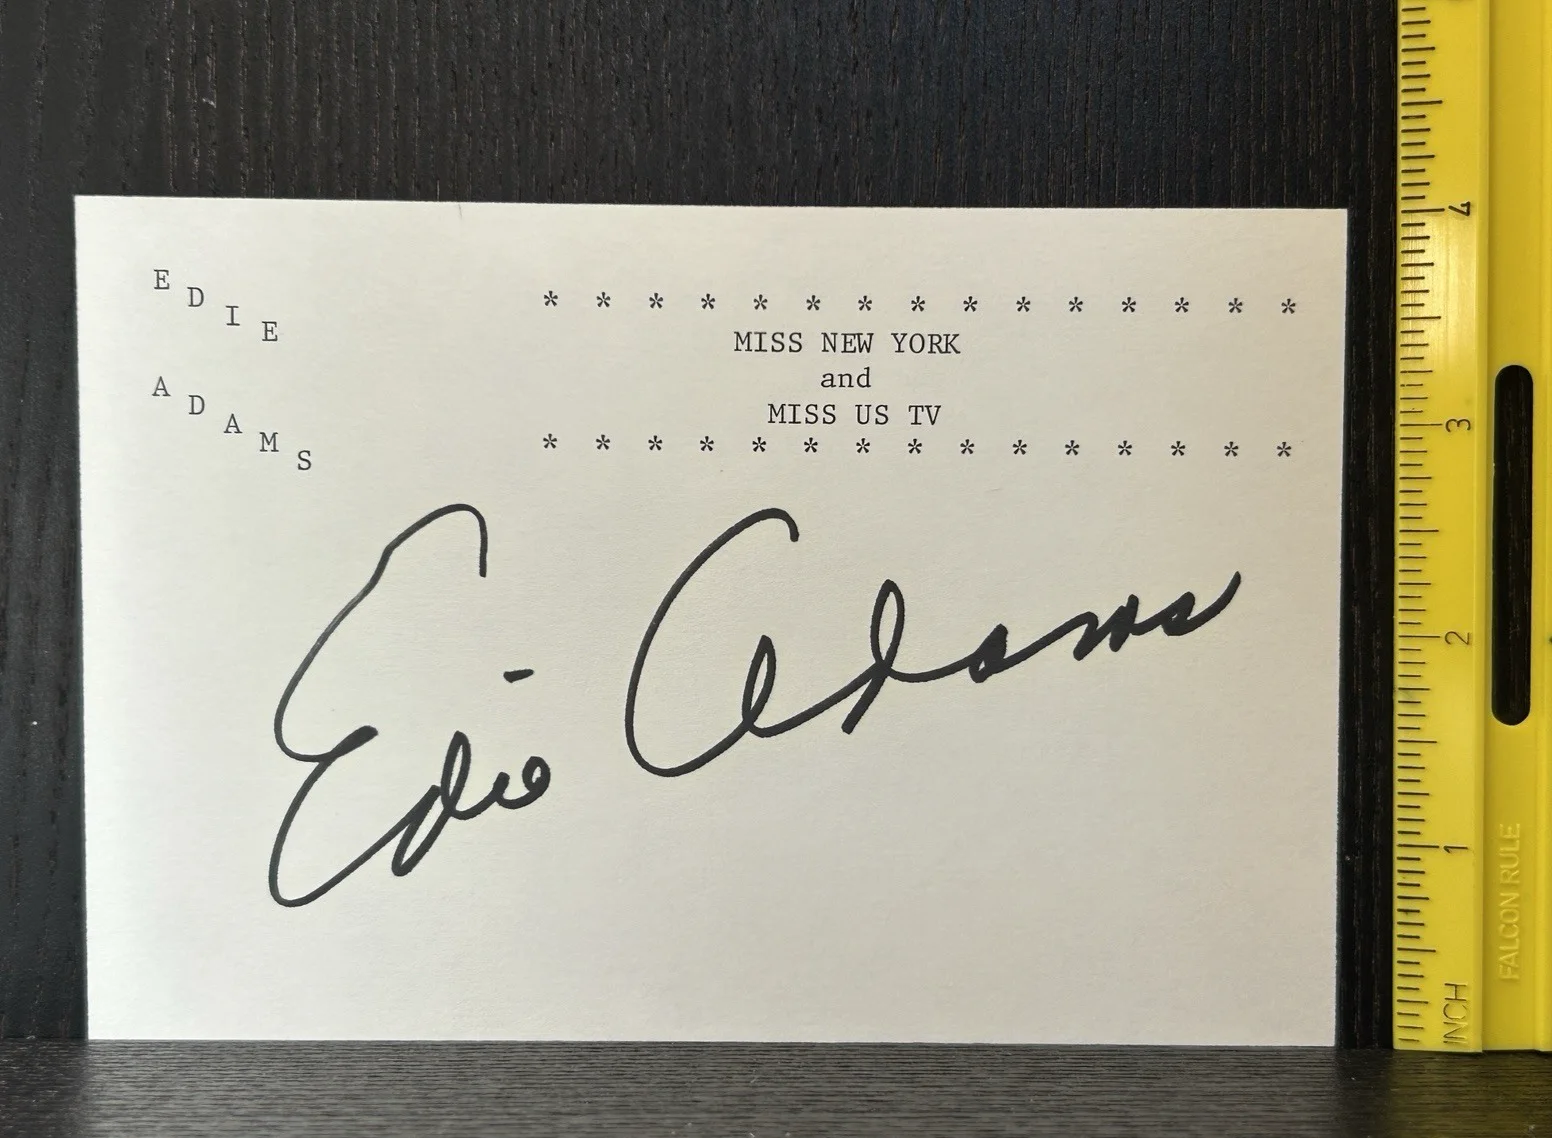 EDIE
ADAMS
* * * * * * * * * * * * * * *
MISS NEW YORK
and
MISS US TV
* * * * * * * * * * * * * * *
Edie Adams
4
3
2
1
INCH
FALCON RULE